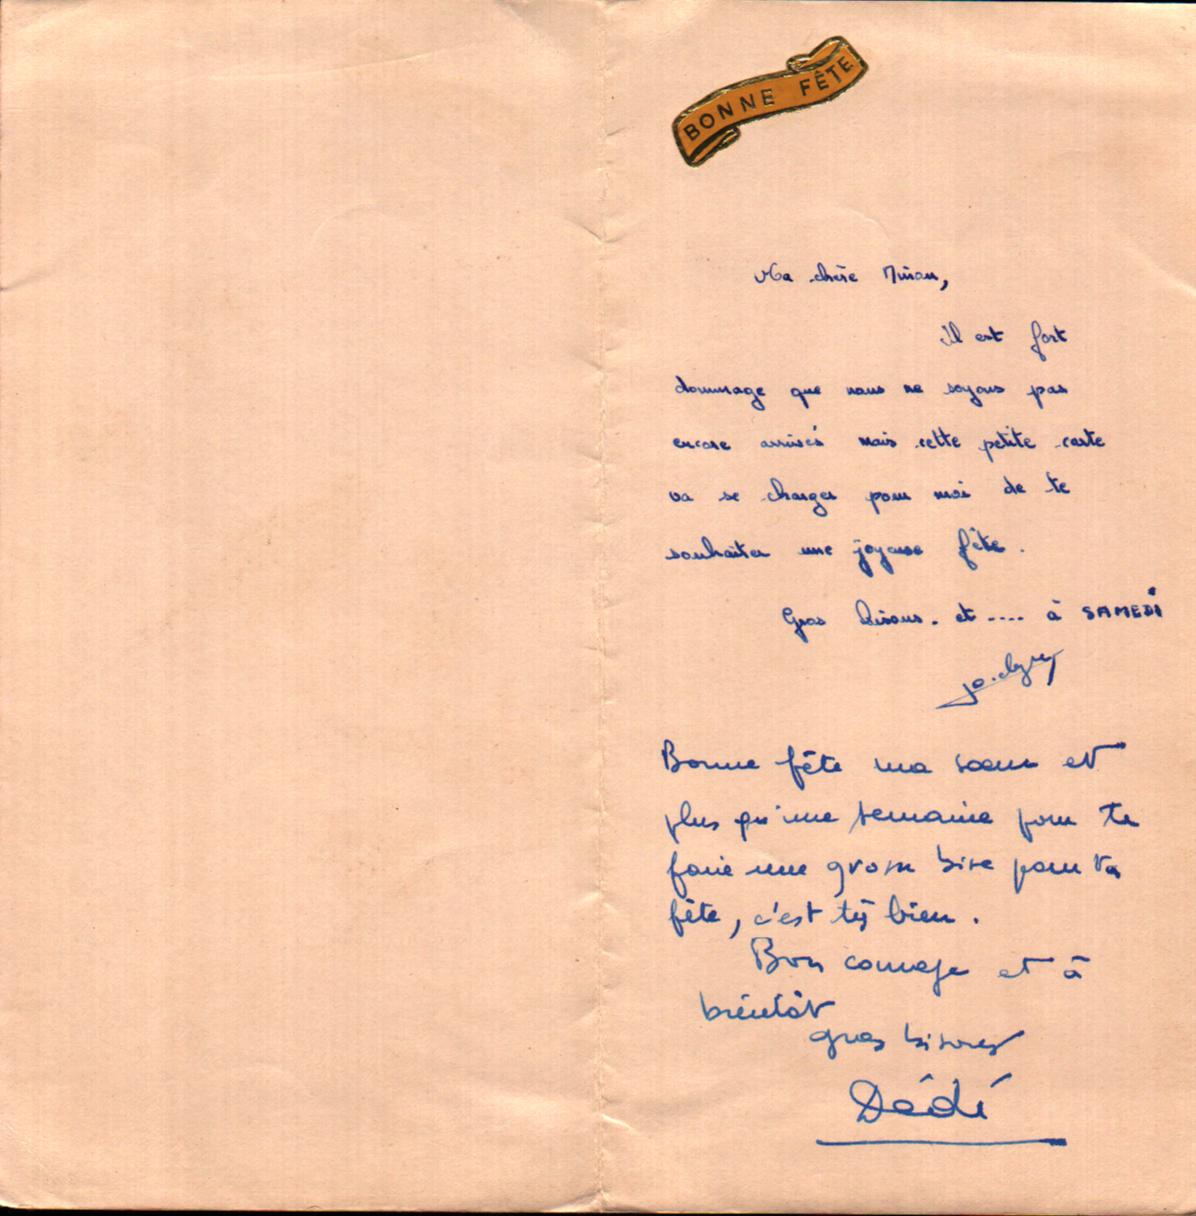 BONNE FÊTE
Ma chère
il est fort
dommage que nous ne soyons pas
encore arrivés mais cette petite carte
va se charger pour moi de te
souhaiter une joyeuse fête.
Gros bisous. et .... à SAMEDI
Bonne fête ma soeur et
plus qu'une semaine pour te
faire une grosse bise pour ta
fête, c'est tjs bien.
Bon courage et à
bientôt
gros bisous
Dédé